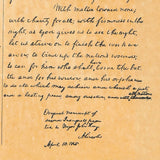 With malice toward none,
with charity for all, with firmness in the
right, as God gives us to see the right,
let us strive on to finish the work we
are in; to bind up the nation's wounds,
to care for him who shall have borne the bat-
tle and for his widow and his orphan
to do all which may achieve and cherish a just
and a lasting peace among ourselves and with all nations
Original manuscript of
April 10, 1865